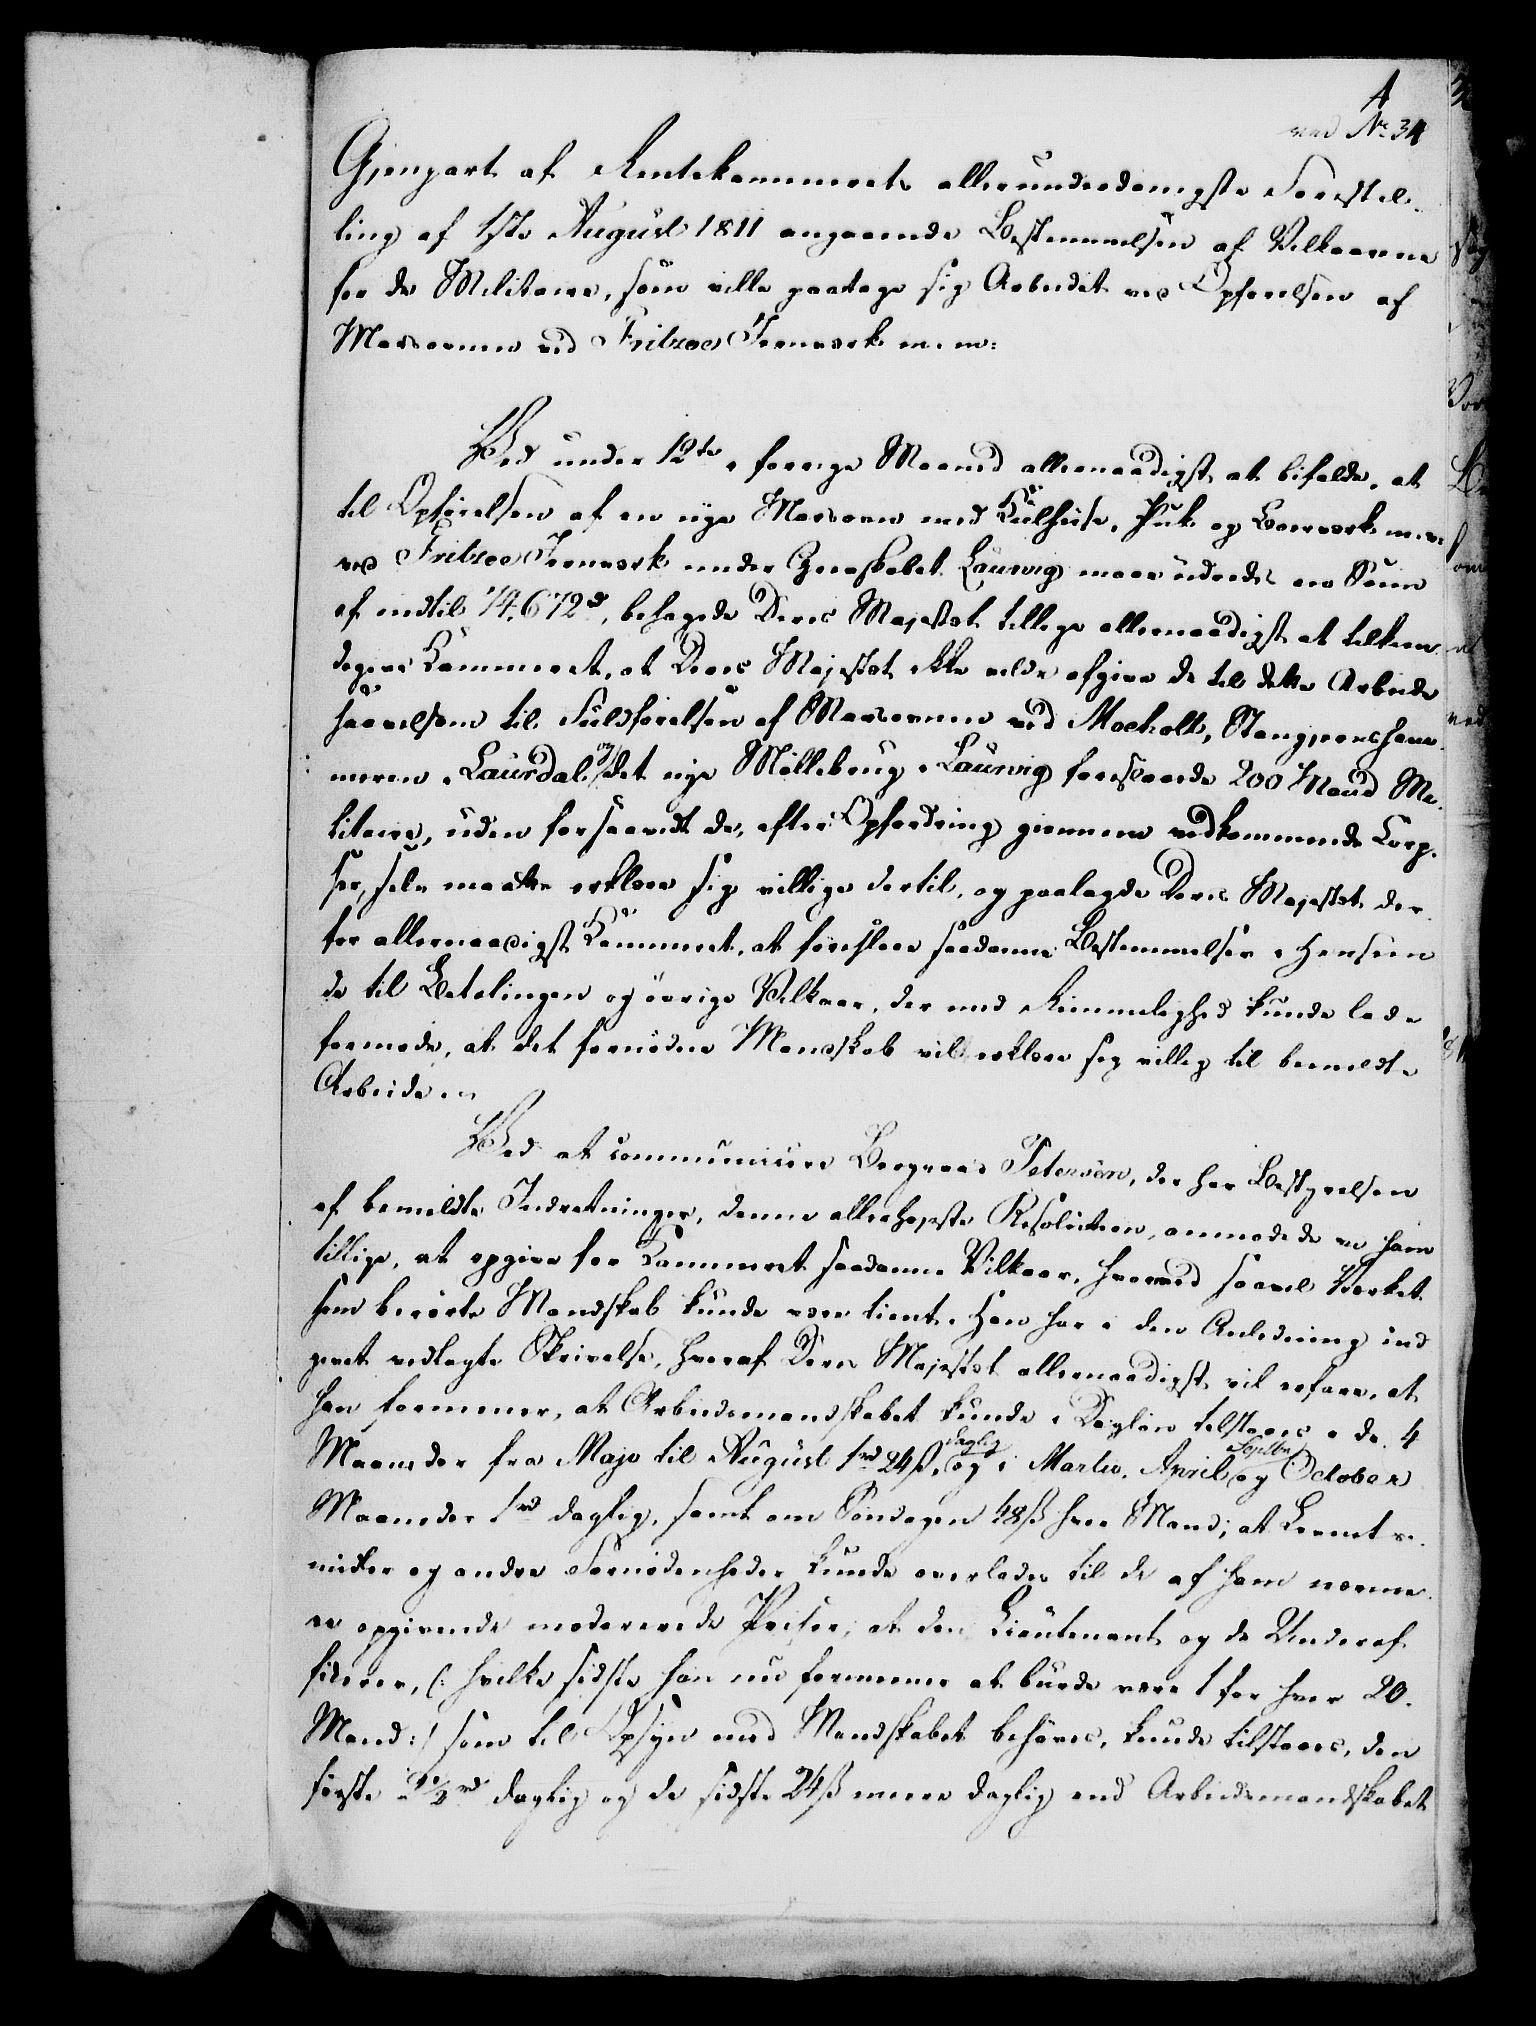 A
ved No 34
Gjenpart af Rentekammerets allerunderdanigste Forestil-
ling af 1ste August 1811 angaaende Bestemmelsen af Vilkaarene
for de Militaire, som ville paatage sig Arbeidet ved Opførelsen af
Masovnen ved Fritzoe Jernværk m. m:
Ved under 12te i forrige Maaned allernaadigst at bifalde, at
til Opførelsen af en nye Masovn med Kulhuse, Puk og Vaskværk m. v.
ved Fritzoe Jernværk under Grevskabet Laurvig maae udrede en Sum
af indtil 74,672 rd, behagede Deres Majestæt tillige allernaadigst at tilkien-
degive Kammeret, at Deres Majestæt ikke vilde afgive de til dette Arbeide
saavelsom til Fuldførelsen af Masovnen ved Moeholt, Stangjernsham-
meren i Laurdal og det nye Møllebrug i Laurvig foreslaaede 200 Mand Mi-
litaire, uden forsaavidt de, efter Opfordring giennem vedkommende Corp-
ser, selv maatte erklære sig villige dertil, og paalagde Deres Majestæt der-
for allernaadigst Kammeret, at foreslaae saadanne Bestemmelser i Hensen-
de til Betalingen og øvrige Vilkaar, der med Rimelighed kunde lade
formode, at det fornødne Mandskab vil erklære sig villig til bemeldte
Arbeide.
Ved at communicere Bergraad Petersen, der har Bestyrelsen
af bemeldte Indretninger, denne allerhøjeste Resolution, anmodede vi ham
tillige, at opgive for Kammeret saadanne Vilkaar, hvormed saavel Værket
som berørte Mandskab kunde være tient. Han har i den Anledning ind-
givet vedlagte Skrivelse, hvoraf Deres Majestæt allernaadigst vil erfare, at
han formener, at Arbeidsmandskabet kunde i Dagløn tilstaaes i de 4
Maaneder fra Majo til August 1 rd 24 ß daglig, og i Martii, April Septbr og October
Maaneder 1 rd daglig, samt om Søndagen 48 ß hver Mand; at Levnets-
midler og andre Fornødenheder kunde overlades til de af ham nærme-
re opgivende modererede Priser; at den Lieutenant og de Underof-
ficerer, (: hvilke sidste han nu formener at burde være 1 for hver 20
Mand :) som til Opsyn med Mandskabet behøves, kunde tilstaaes, den
første 2½ rd daglig og de sidste 24 ß meere daglig end Arbeidsmandskabet